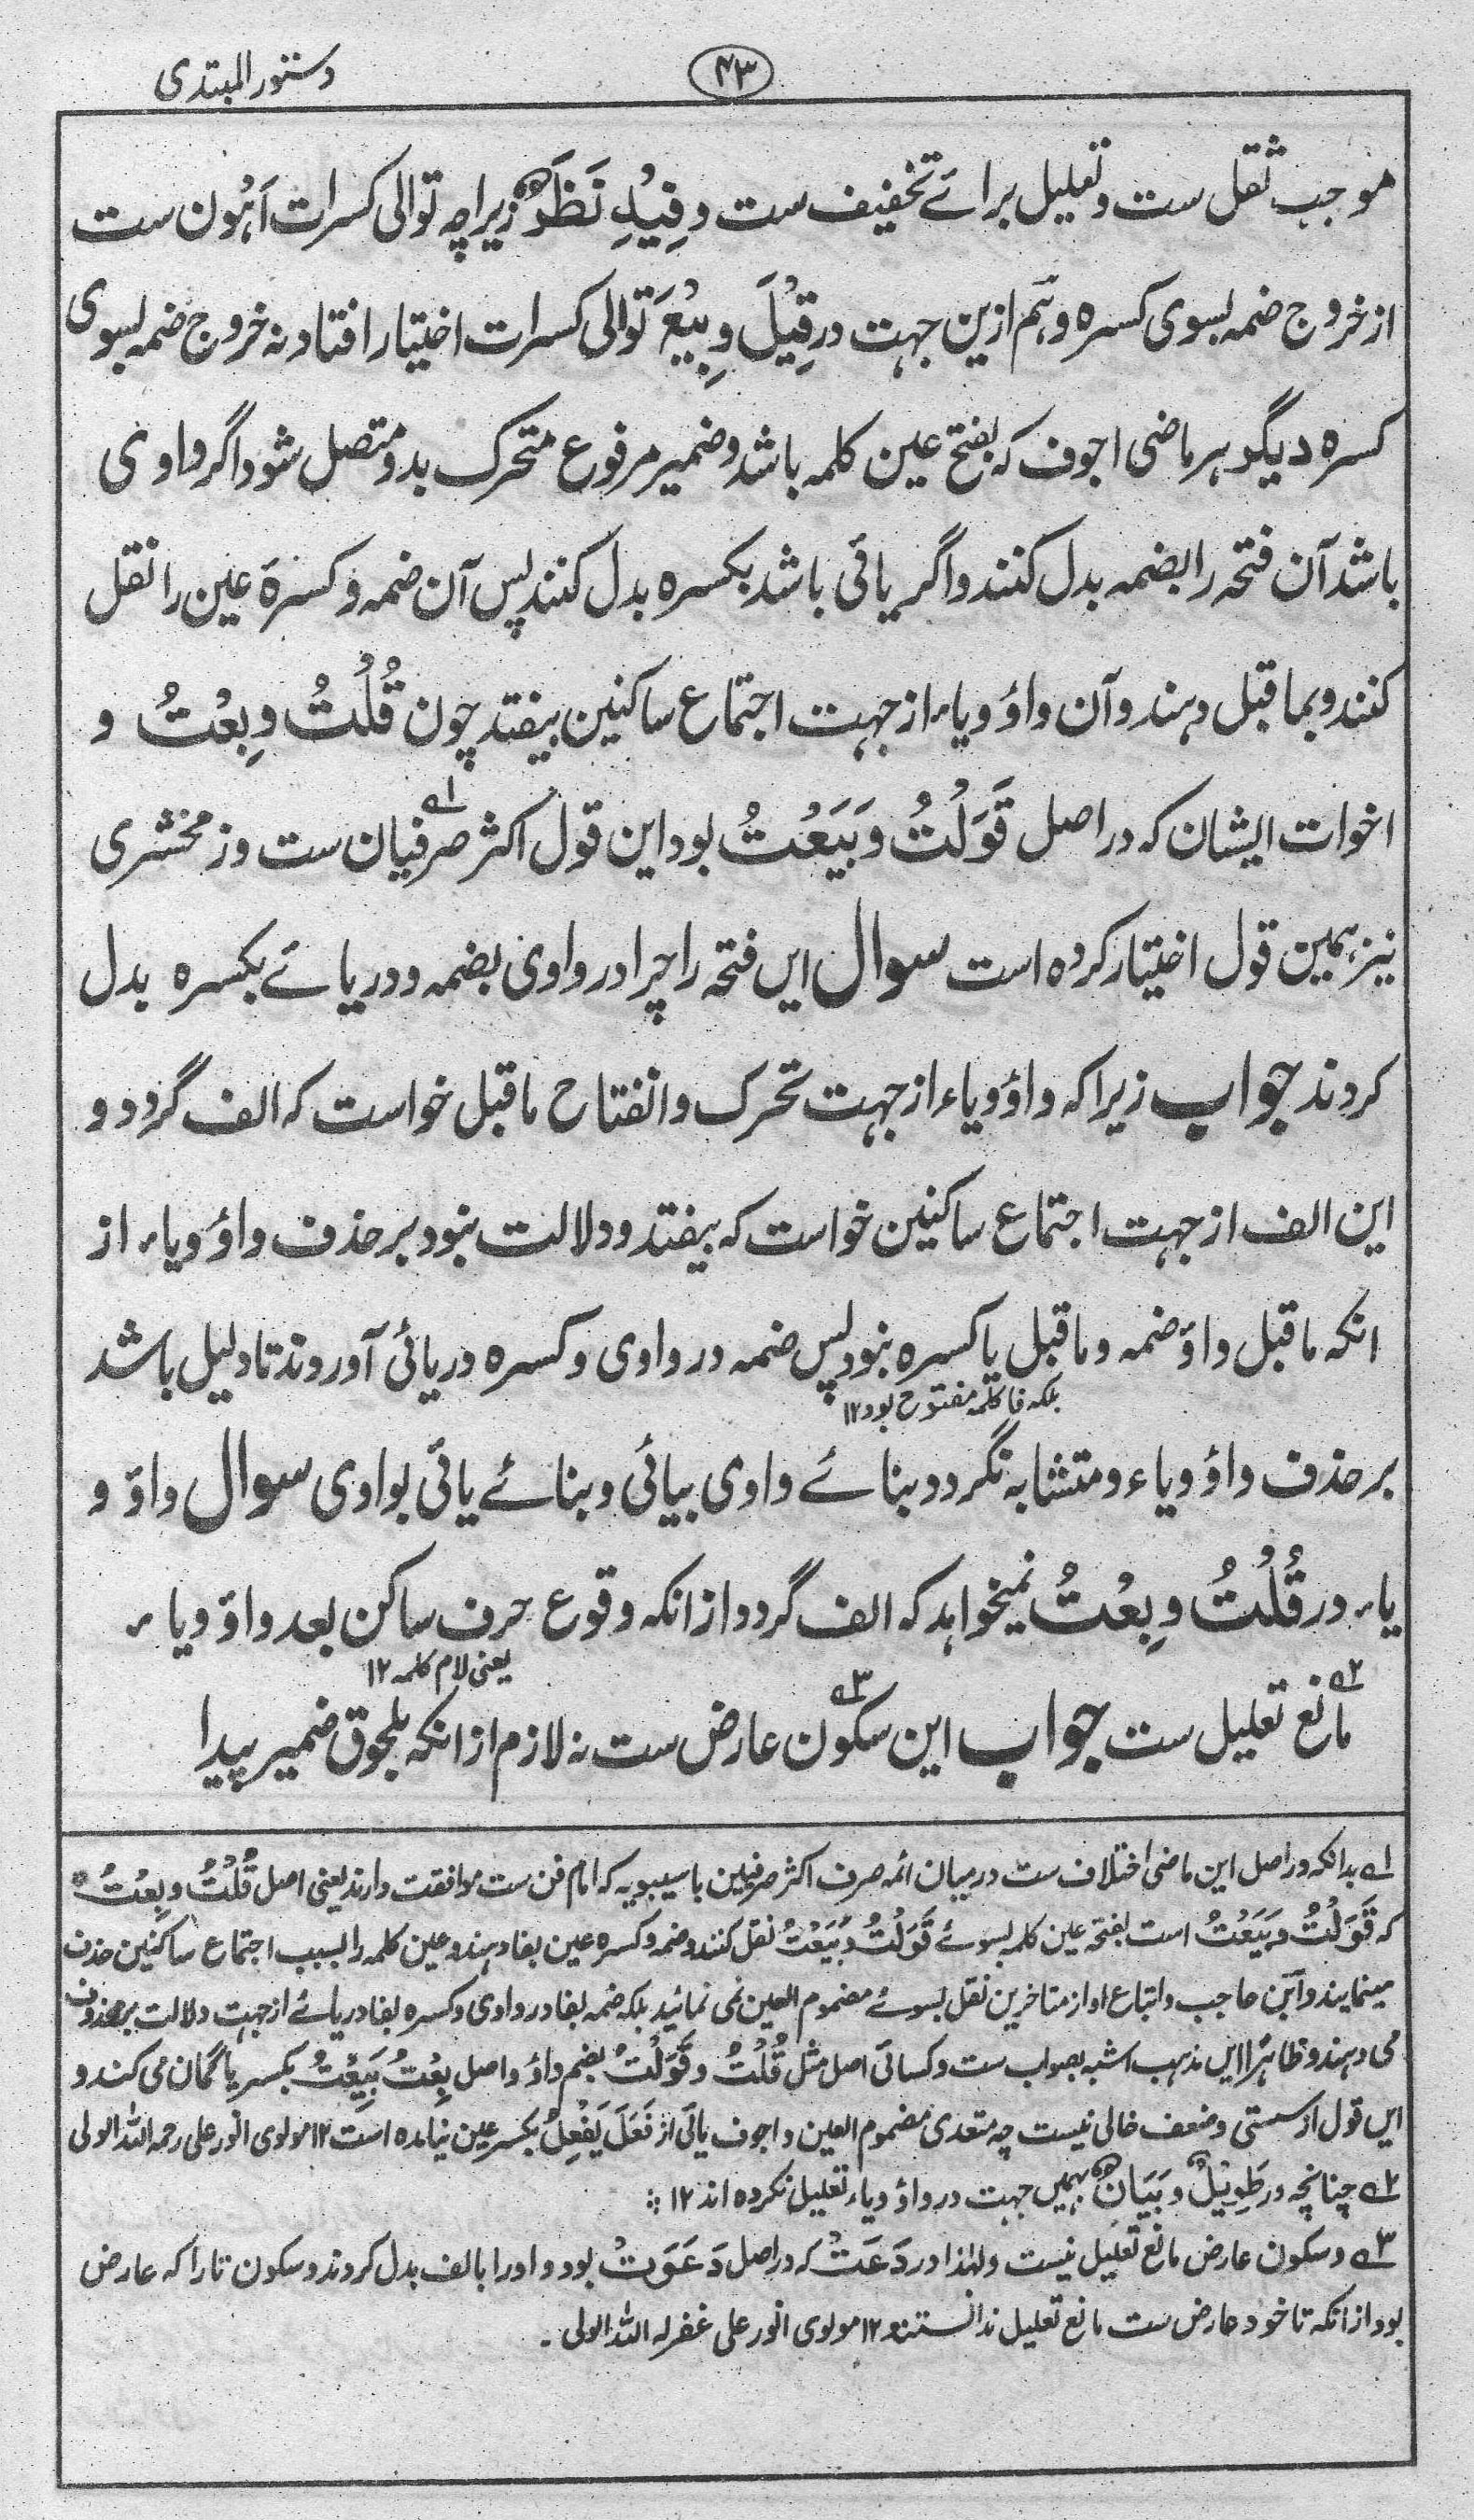 دستور المبتدی
۴۳
موجب ثقل ست و تعلیل برائے تخفیف ست وَفِیْہِ نَظَرٌ زیراچہ توالی کسرات اَہْون ست
از خروج ضمہ بسوی کسرہ و ہم ازین جہت در قِیْلَ و بِیْعَ توالی کسرات اختیار افتاد نہ خروج ضمہ بسوی
کسرہ دیگر ہر ماضی اجوف کہ بفتح عین کلمہ باشد و ضمیر مرفوع متحرک بدو متصل شود اگر واوی
باشد آن فتحہ را بضمہ بدل کنند و اگر یائی باشد بکسرہ بدل کنند پس آن ضمہ و کسرۂ عین را نقل
کنند و بما قبل دہند و آن واؤ و یاء از جہت اجتماع ساکنین بیفتد چون قُلْتُ و بِعْتُ و
اخوات ایشان کہ در اصل قَوَلْتُ و بَیَعْتُ بود این قول اکثر صرفیان ست و زمخشری ۱؎
نیز ہمین قول اختیار کردہ است سوال این فتحہ را چرا در واوی بضمہ و در یائے بکسرہ بدل
کردند جواب زیرا کہ واؤ و یاء از جہت تحرک و انفتاح ما قبل خواست کہ الف گردد و
این الف از جہت اجتماع ساکنین خواست کہ بیفتد و دلالت نبود بر حذف واؤ و یاء از
انکہ ما قبل واؤ ضمہ و ما قبل یا کسرہ نبود پس ضمہ در واوی و کسرہ در یائی آوردند تا دلیل باشد
بلکہ فا کلمہ مفتوح بود ۱۲
بر حذف واؤ و یاء و متشابہ نگردد بنائے واوی بیائی و بنائے یائی بواوی سوال واؤ و
یاء در قُلْتُ و بِعْتُ نمیخواہد کہ الف گردد از انکہ وقوع حرف ساکن بعد واؤ و یاء
یعنی لام کلمہ ۱۲
۲؎ مانع تعلیل ست جواب این سکون ۳؎ عارض ست نہ لازم از انکہ بلحوق ضمیر پیدا
۱؎ بدانکہ در اصل این ماضی اختلاف ست درمیان ائمہ صرف اکثر صرفیین با سیبویہ کہ امام فن ست موافقت دارند یعنی اصل قُلْتُ و بِعْتُ
کہ قَوَلْتُ و بَیَعْتُ است بفتحہ عین کلمہ بسوئے قَوُلْتُ و بَیِعْتُ نقل کنند و ضمہ و کسرہ عین بفا دہند و عین کلمہ را بسبب اجتماع ساکنین حذف
مینمایند و ابن حاجب و اتباع او از متاخرین نقل بسوئے مضموم العین نمی نمائید بلکہ ضمہ بفا در واوی و کسرہ بفا در یائے از جہت دلالت بر حذوف
می دہند و ظاہرًا این مذہب اشبہ بصواب ست و کسائی اصل مثل قُلْتُ و قَوُلْتُ بضم واؤ و اصل بِعْتُ بَیِعْتُ بکسر یا گمان می کند و
این قول از سستی و ضعف خالی نیست چہ متعدی مضموم العین و اجوف یائی از فَعَلَ یَفْعِلُ بکسر عین نیامدہ است ۱۲ مولوی انور علی رحمہ اللہ الولی
۲؎ چنانچہ در طَوِیْلٌ و بَیَانٌ بہمیں جہت در واؤ و یاء تعلیل نکردہ اند ۱۲ ؞
۳؎ و سکون عارض مانع تعلیل نیست و لہٰذا در دَعَتْ کہ در اصل دَعَوَتْ بود و اورا بالف بدل کردند و سکون تا را کہ عارض
بود از انکہ تا خود عارض ست مانع تعلیل ندانستند ۱۲ مولوی انور علی غفر لہ اللہ الولی ۔